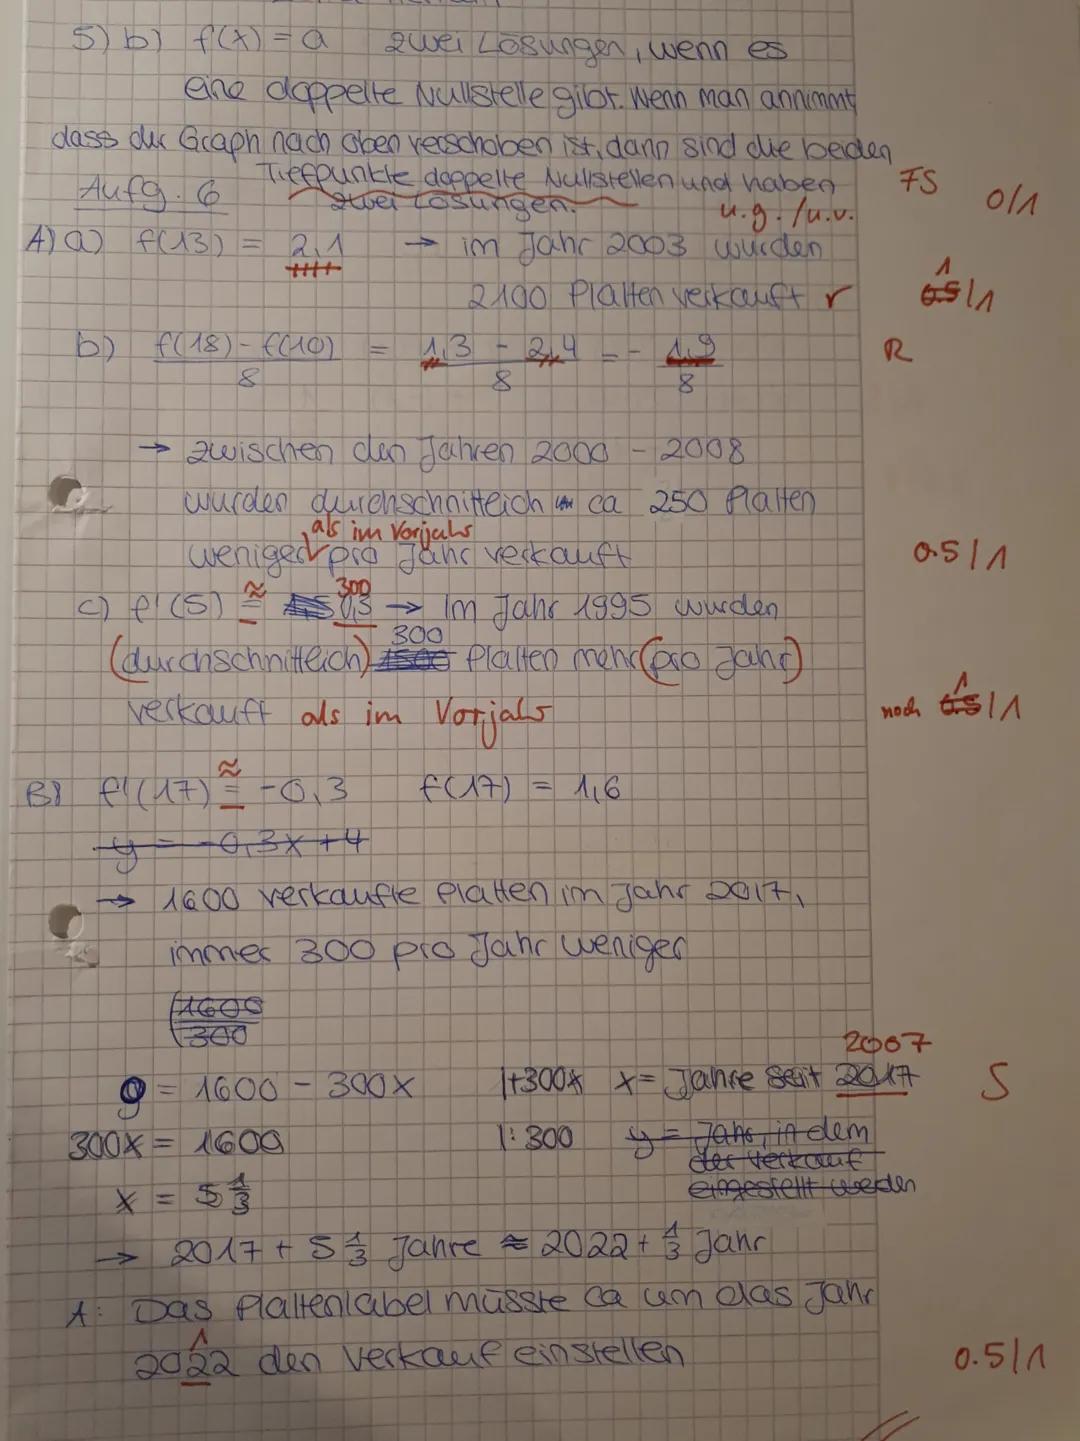 5) b) f(x) = a zwei Lösungen, wenn es
eine doppelte Nullstelle gibt. Wenn man annimmt,
dass der Graph nach oben verschoben ist, dann sind die beiden
Tiefpunkte doppelte Nullstellen und haben FS
zwei Lösungen. u.g./u.v. 0/1
Aufg. 6
A) a) f(13) = 2,1 → im Jahr 2003 wurden
2100 Platten verkauft r 1 0.5/1
b) f(18) - f(10) / 8 = 1,3 - 2,4 / 8 = - 1,9 / 8 R
→ zwischen den Jahren 2000 - 2008
wurden durchschnittlich ca 250 Platten
als im Vorjahr
weniger pro Jahr verkauft 0.5/1
≈ 300
c) f'(5) = 0,3 → Im Jahr 1995 wurden
300
(durchschnittlich) 1500 Platten mehr (pro Jahr)
verkauft als im Vorjahr noch 1 0.5/1
≈
B) f'(17) = -0,3 f(17) = 1,6
y = -0,3x + 4
→ 1600 verkaufte Platten im Jahr 2017,
immer 300 pro Jahr weniger
1600
300
2007
0 = 1600 - 300x |+300x x = Jahre seit 2017 S
300x = 1600 |: 300 y = Jahr, in dem
der Verkauf
eingestellt werden
x = 5 1/3
→ 2017 + 5 1/3 Jahre ≈ 2022 + 1/3 Jahr
A: Das Plattenlabel müsste ca um das Jahr
1
2022 den Verkauf einstellen 0.5/1